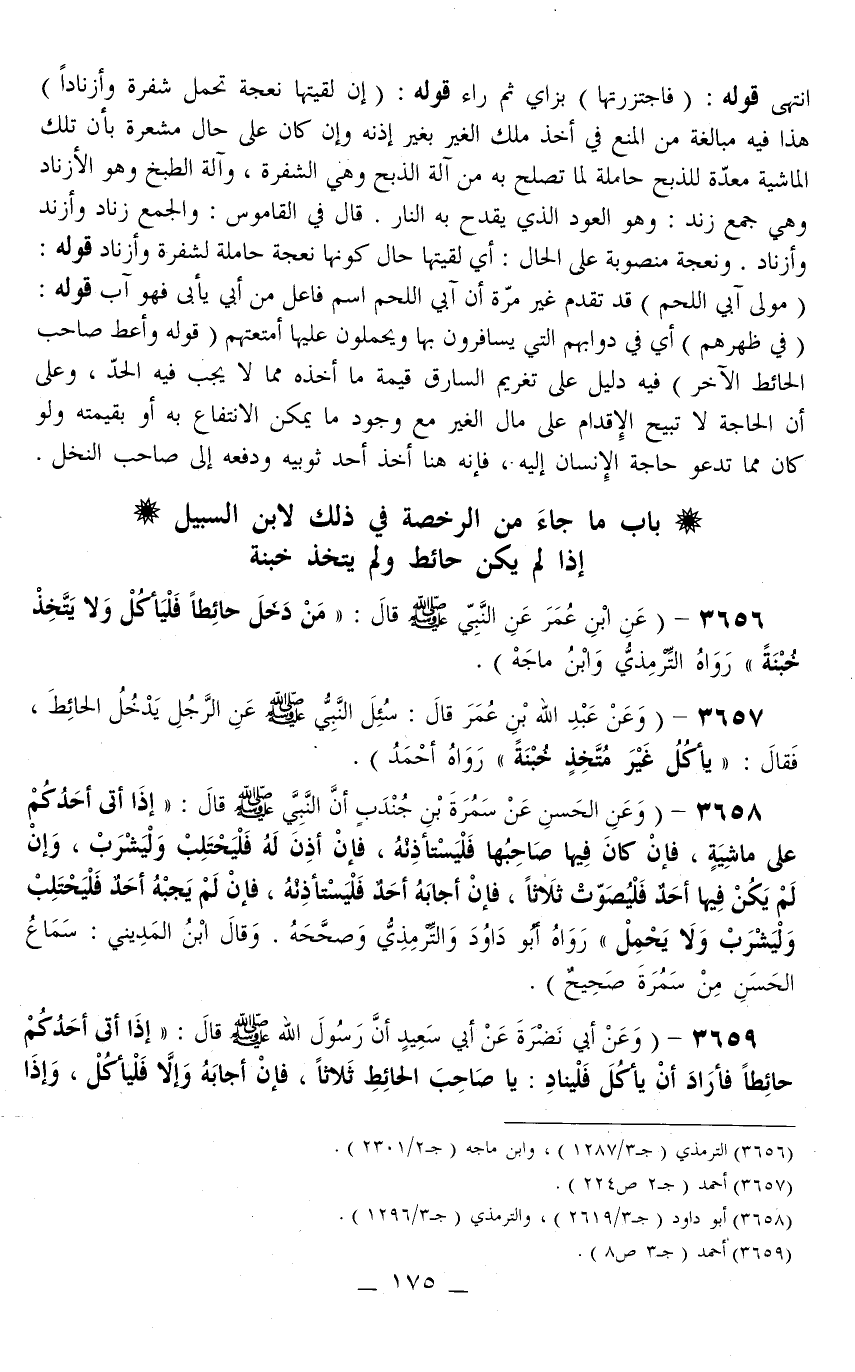 انتهى قوله : ( فاجتزرتها ) بزاي ثم راء قوله : ( إن لقيتها نعجة تحمل شفرة وأزناداً )
هذا فيه مبالغة من المنع في أخذ ملك الغير بغير إذنه وإن كان على حال مشعرة بأن تلك
الماشية معدّة للذبح حاملة لما تصلح به من آلة الذبح وهي الشفرة ، وآلة الطبخ وهو الأزناد
وهي جمع زند : وهو العود الذي يقدح به النار . قال في القاموس : والجمع زناد وأزند
وأزناد . ونعجة منصوبة على الحال : أي لقيتها حال كونها نعجة حاملة لشفرة وأزناد قوله :
( مولى آبي اللحم ) قد تقدم غير مرّة أن آبي اللحم اسم فاعل من أبي يأبى فهو آب قوله :
( في ظهرهم ) أي في دوابهم التي يسافرون بها ويحملون عليها أمتعتهم ( قوله وأعط صاحب
الحائط الآخر ) فيه دليل على تغريم السارق قيمة ما أخذه مما لا يجب فيه الحدّ ، وعلى
أن الحاجة لا تبيح الإقدام على مال الغير مع وجود ما يمكن الانتفاع به أو بقيمته ولو
كان مما تدعو حاجة الإنسان إليه ، فإنه هنا أخذ أحد ثوبيه ودفعه إلى صاحب النخل .
باب ما جاءَ من الرخصة في ذلك لابن السبيل
إذا لم يكن حائط ولم يتخذ خبنة
٣٦٥٦ - ( عَنِ ابْنِ عُمَرَ عَنِ النَّبِيّ ﷺ قالَ : « مَنْ دَخَلَ حائِطاً فَلْيَأكُلْ وَلا يَتَّخِذْ
خُبْنَةً » رَوَاهُ التِّرْمِذِيُّ وَابْنُ ماجَهْ ) .
٣٦٥٧ - ( وَعَنْ عَبْدِ الله بْنِ عُمَرَ قالَ : سُئِلَ النَّبِيُّ ﷺ عَنِ الرَّجُلِ يَدْخُلُ الحائِطَ ،
فَقالَ : « يأكُلُ غَيْرَ مُتَّخِذٍ خُبْنَةً » رَوَاهُ أحْمَدُ ) .
٣٦٥٨ - ( وَعَنِ الحَسنِ عَنْ سَمُرَةَ بْنِ جُنْدَبٍ أنَّ النَّبيَّ ﷺ قالَ : « إذَا أتى أحَدُكُمْ
على ماشِيَةٍ ، فإنْ كانَ فِيها صَاحِبُها فَلْيَسْتأذِنْهُ ، فإنْ أذِنَ لَهُ فَلْيَحْتلِبْ وَلْيَشْرَبْ ، وَإنْ
لَمْ يَكُنْ فِيها أحَدٌ فَلْيُصَوِّتْ ثَلاثاً ، فإنْ أجابَهُ أحَدٌ فَلْيَسْتأذِنْهُ ، فإنْ لَمْ يَجِبْهُ أحَدٌ فَلْيَحْتلِبْ
وَلْيَشْرَبْ وَلَا يَحْمِلْ » رَوَاهُ أبُو دَاوُدَ وَالتِّرْمِذِيُّ وَصحَّحَهُ . وَقالَ ابْنُ المَدِيني : سَمَاعُ
الحَسَنِ مِنْ سَمُرَةَ صَحِيحٌ ) .
٣٦٥٩ - ( وَعَنْ أبي نَضْرَةَ عَنْ أبي سَعِيدٍ أنَّ رَسُولَ الله ﷺ قالَ : « إذَا أتى أحَدُكُمْ
حائِطاً فأرَادَ أنْ يأكُلَ فَلْيِنادِ : يا صَاحِبَ الحائِطِ ثَلاثاً ، فإنْ أجابَهُ وَإلَّا فَلْيأكُلْ ، وَإذَا
(٣٦٥٦) الترمذي ( جـ٣/١٢٨٧ ) ، وابن ماجه ( جـ٢/٢٣٠١ ) .
(٣٦٥٧) أحمد ( جـ٢ ص٢٢٤ ) .
(٣٦٥٨) أبو داود ( جـ٣/٢٦١٩ ) ، والترمذي ( جـ٣/١٢٩٦ ) .
(٣٦٥٩) أحمد ( جـ٣ ص٨ ) .
_ ١٧٥ _